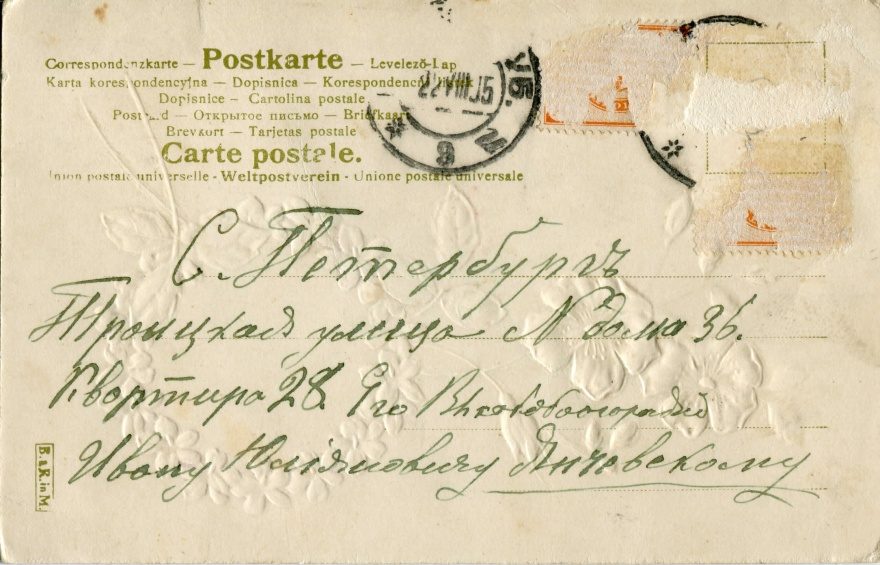 Correspondenzkarte — Postkarte — Levelező-Lap
Karta korespondencyjna — Dopisnica — Korespondenční lístek
Dopisnice — Cartolina postale
Postcard — Открытое письмо — Briefkaart
Brevkort — Tarjetas postales
Carte postale.
Union postale universelle - Weltpostverein - Unione postale universale
22 VIII 15
9
С. Петербургъ
Троицкая улица № дома 36.
Квартира 28. Его
Ивану Юліановичу Янчевскому
B. & R. in M.